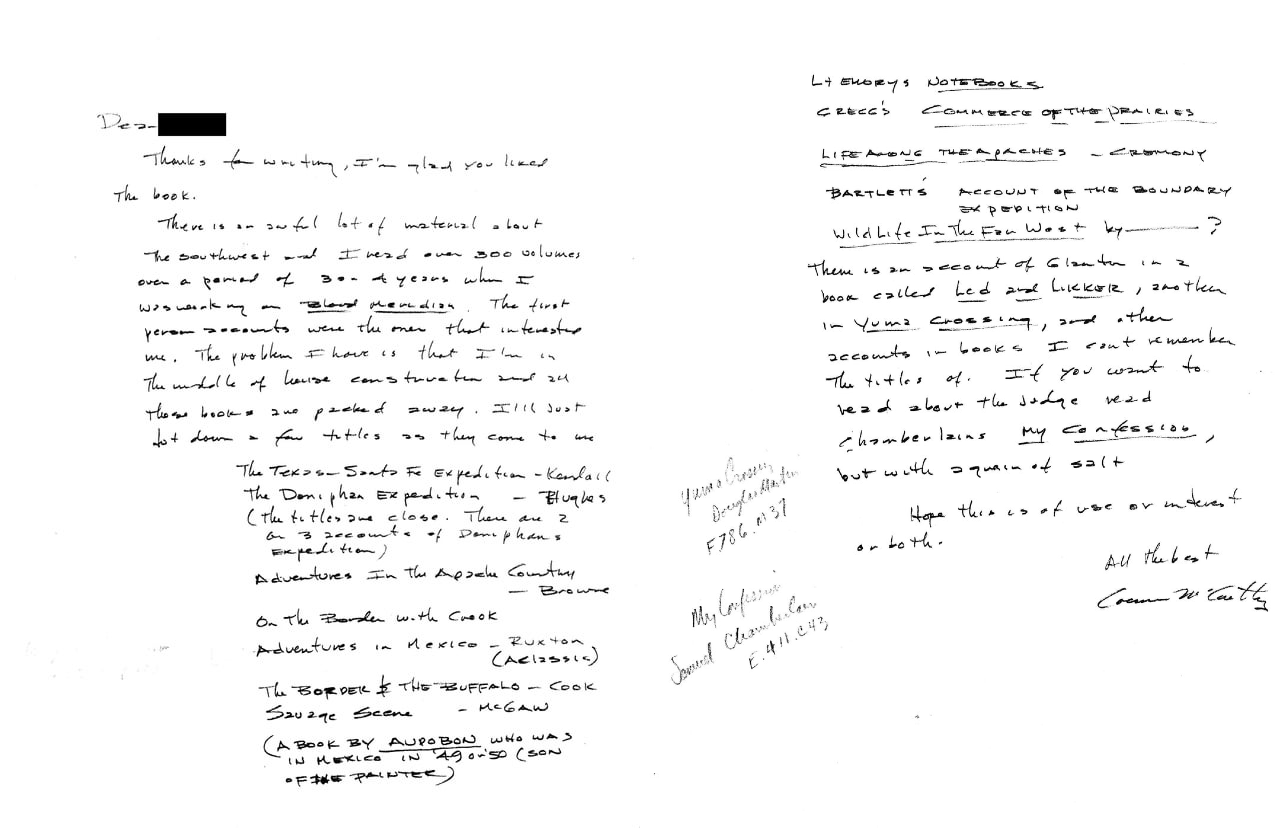 Dear
Thanks for writing, I'm glad you liked
the book.
There is an awful lot of material about
the southwest and I read over 300 volumes
over a period of 3 or 4 years when I
was working on Blood Meridian. The first
person accounts were the ones that interested
me. The problem I have is that I'm in
the middle of house construction and all
these books are packed away. I'll just
jot down a few titles as they come to me
The Texas-Santa Fe Expedition - Kendall
The Doniphan Expedition - Hughes
(the titles are close. There are 2
or 3 accounts of Doniphans
Expedition)
Adventures In the Apache Country
- Browne
On The Border with Crook
Adventures in Mexico - Ruxton
(A classic)
The BORDER & THE BUFFALO - COOK
Savage Scene - McGAW
(A BOOK BY AUDOBON WHO WAS
IN MEXICO IN '49 or '50 (SON
OF THE PAINTER)
Lt EMORYS NOTEBOOKS
GREGG'S COMMERCE OF THE PRAIRIES
LIFE AMONG THE APACHES - CREMONY
BARTLETT'S ACCOUNT OF THE BOUNDARY
EXPEDITION
Wild Life In The Far West by ———— ?
There is an account of Glanton in a
book called Led and Likker, another
in Yuma Crossing, and other
accounts in books I cant remember
the titles of. If you want to
read about the judge read
Chamberlains My Confession,
but with a grain of salt
Hope this is of use or interest
or both.
All the best
Cormac McCarthy
Yuma Crossing
Douglas Martin
F786.M37
My Confession
Samuel Chamberlain
E.411.C43